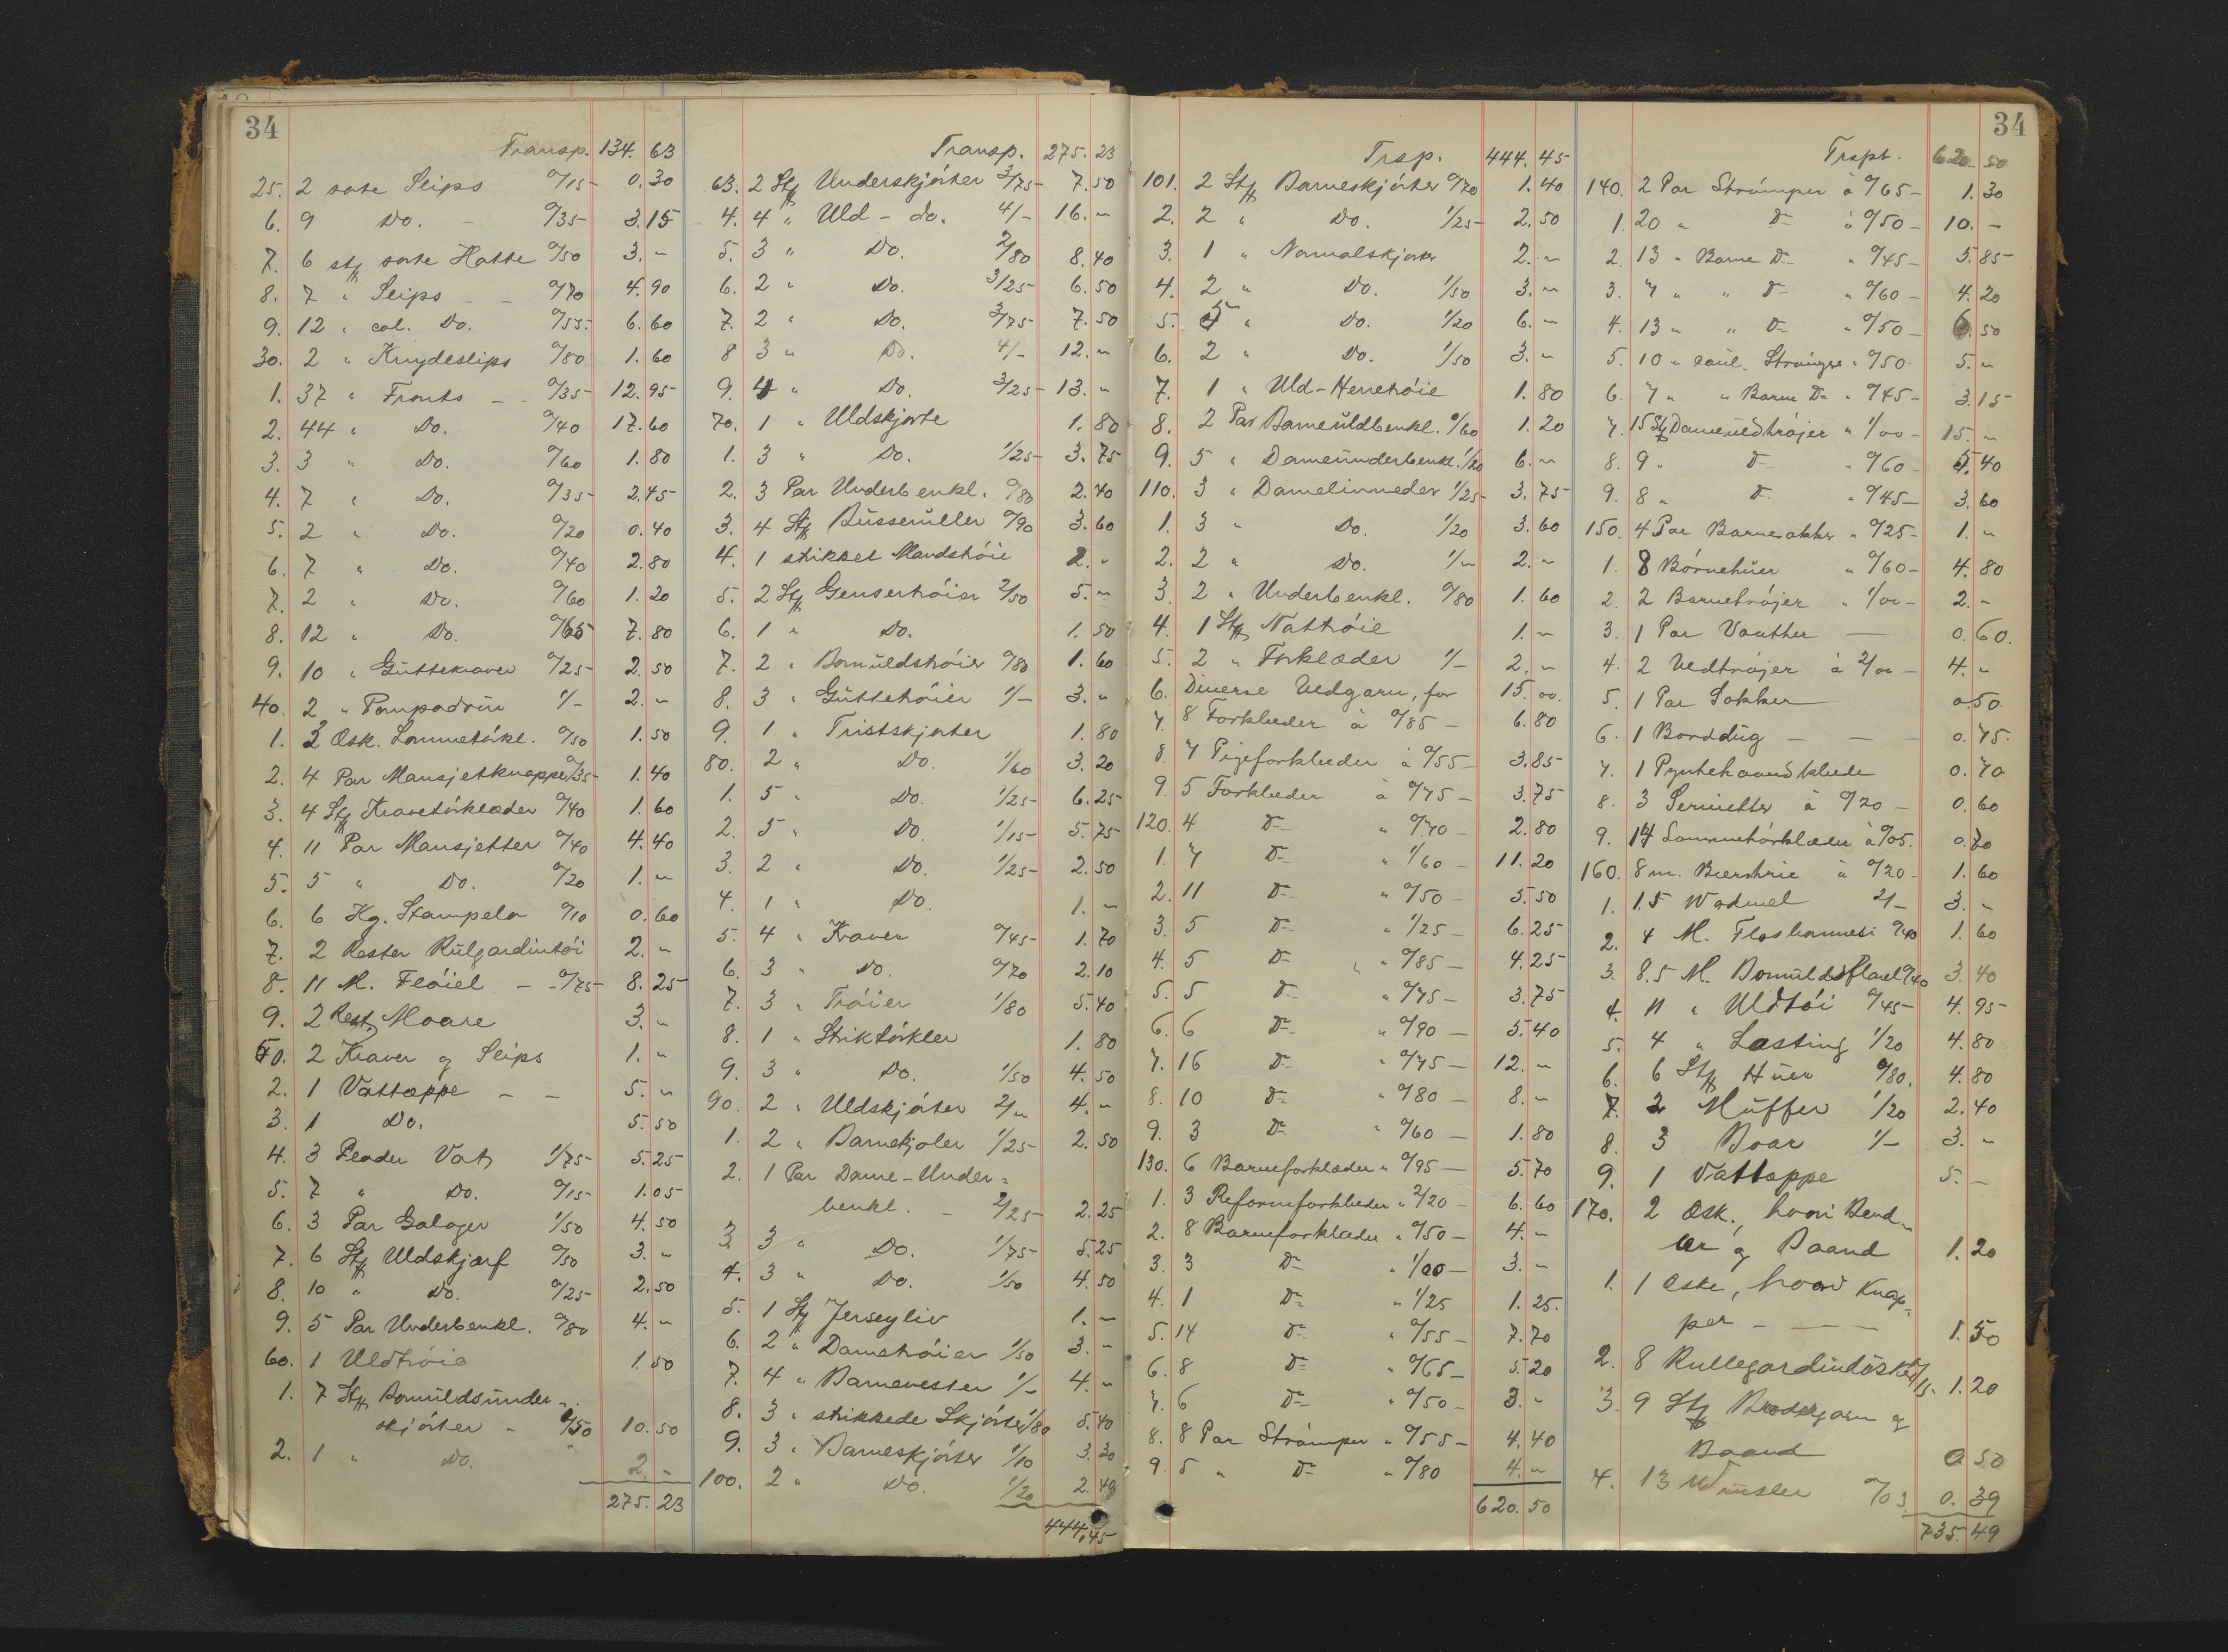 34
Transp. 134. 63
25. 2 sorte Slips 0/15- 0.30
6. 9 Do. - 0/35- 3.15
7. 6 stk sorte Hatte 0/50 3. "
8. 7 " Slips - - 0/70 4.90
9. 12 " col. Do. 0/55- 6.60
30. 2 " Knydeslips 0/80 1.60
1. 37 " Fronts - - 0/35- 12.95
2. 44 " Do. 0/40 17.60
3. 3 " Do. 0/60 1.80
4. 7 " Do. 0/35- 2.45
5. 2 " Do. 0/20 0.40
6. 7 " Do. 0/40 2.80
7. 2 " Do. 0/60 1.20
8. 12 " Do. 0/65 7.80
9. 10 " Guttekraver 0/25- 2.50
40. 2 " Pompadour 1/- 2. "
1. 3 Æsk. Lommetórkl. 0/50 1.50
2. 4 Par Mansjetknapper 0/35- 1.40
3. 4 Stk Kravetórklæder 0/40 1.60
4. 11 Par Mansjetter 0/40 4.40
5. 5 " Do. 0/20 1. "
6. 6 Hg. Stampela 0/10 0.60
7. 2 Rester Rulgardintói 2. "
8. 11 M. Flóiel - - 0/75- 8.25
9. 2 Rest. Moare 3. "
50. 2 Kraver og Slips 1. "
2. 1 Vattæppe - - 5. "
3. 1 Do. 5.50
4. 3 Plader Vat 1/75- 5.25
5. 7 " Do. 0/15- 1.05
6. 3 Par Galoger 1/50 4.50
7. 6 Stk Uldskjærf 0/50 3. "
8. 10 " Do. 0/25- 2.50
9. 5 Par Underbenkl. 0/80 4. "
60. 1 Uldtróie 1.50
1. 7 Stk Bomuldsunder-
skjórter - 1/50 10.50
2. 1 " Do. 2. -
275. 23
Transp. 275. 23
63. 2 Stk Underskjórter 3/75- 7.50
4. 4 " Uld - do. 4/- 16. "
5. 3 " Do. 2/80 8.40
6. 2 " Do. 3/25 6.50
7. 2 " Do. 3/75- 7.50
8 3 " Do. 4/- 12. "
9. 4 " Do. 3/25- 13. "
70. 1 " Uldskjorte 1.80
1. 3 " Do. 1/25- 3.75
2. 3 Par Underbenkl. 0/80 2.40
3. 4 Stk Busseruller 0/90 3.60
4. 1 strikket Mandstróie 2. "
5. 2 Stk Gensertróier 2/50 5. "
6. 1 " Do. 1.50
7. 2 " Bomuldstróier 0/80 1.60
8. 3 " Guttetróier 1/- 3. "
9. 1 " Tristskjorter 1.80
80. 2 " Do. 1/60 3.20
1. 5 " Do. 1/25- 6.25
2. 5 " Do. 1/15- 5.75
3. 2 " Do. 1/25- 2.50
4. 1 " Do. 1. -
5. 4 " Kraver 0/45- 1.70
6. 3 " Do. 0/70 2.10
7. 3 " Tróier 1/80 5.40
8. 1 " Striktórkler 1.80
9. 3 " Do. 1/50 4.50
90. 2 " Uldskjórter 2/" 4. "
1. 2 " Barnekjoler 1/25- 2.50
2. 1 Par Dame-Under=
benkl. - 2/25- 2.25
3. 3 " Do. 1/75- 5.25
4. 3 " Do. 1/50 4.50
5. 1 Stk Jerseyliv 1. -
6. 2 " Dametróier 1/50 3. -
7. 4 " Barnevester 1/- 4. "
8. 3 " strikkede Skjórter 1/80 5.40
9. 3 " Barneskjórter 1/10 3.30
100. 2 " Do. 1/20 2.40
444.45
34
Trsp. 444. 45
101. 2 Stk Barneskjórter 0/70 1.40
2. 2 " Do. 1/25- 2.50
3. 1 " Normalskjorter 2. "
4. 2 " Do. 1/50 3. "
5. 5 " Do. 1/20 6. -
6. 2 " Do. 1/50 3. "
7. 1 " Uld-Herretróie 1.80
8. 2 Par Barneuldbenkl. 0/60 1.20
9. 5 " Dameunderbenkl. 1/20 6. -
110. 3 " Damelinneder 1/25- 3.75
1. 3 " Do. 1/20 3.60
2. 2 " Do. 1/" 2. -
3. 2 " Underbenkl. 0/80 1.60
4. 1 Stk Nattróie 1. -
5. 2 " Forklæder 1/- 2. "
6. Diverse Uldgarn, for 15.00.
7. 8 Forklæder à 0/85 - 6.80
8. 7 Pigeforklæder à 0/55 - 3.85
9. 5 Forklæder à 0/75 - 3.75
120. 4 D= " 0/70 - 2.80
1. 7 D= " 1/60 - 11.20
2. 11 D= " 0/50 - 5.50
3. 5 D= " 1/25 - 6.25
4. 5 D= " 0/85 - 4.25
5. 5 D= " 0/75 - 3.75
6. 6 D= " 0/90 - 5.40
7. 16 D= " 0/75 - 12. -
8. 10 D= " 0/80 - 8. "
9. 3 D= " 0/60 - 1.80
130. 6 Barneforklæder " 0/95 - 5.70
1. 3 Reformforklæder " 2/20 - 6.60
2. 8 Barneforklæder " 0/50 - 4. -
3. 3 D= " 1/00 - 3. -
4. 1 D= " 1/25 1.25.
5. 14 D= " 0/55 - 7.70
6. 8 D= " 0/65 - 5.20
7. 6 D= " 0/50 - 3. "
8. 8 Par Strómper " 0/55 - 4.40
9. 5 " D= " 0/80 4. "
620. 50
Trspt. 620. 50
140. 2 Par Strómper à 0/65 - 1.30
1. 20 " D= à 0/50 - 10. -
2. 13 " Barne D= " 0/45 - 5.85
3. 7 " " D= " 0/60 - 4.20
4. 13 " " D= " 0/50 - 6.50
5. 10 " Strómper " 0/50 5. "
6. 7 " " Barne D= " 0/45 - 3.15
7. 15 Stk Dameuldtrójer " 1/00 - 15. "
8. 9 " D= " 0/60 - 5.40
9. 8 " D= " 0/45 - 3.60
150. 4 Par Barnesokker " 0/25 - 1. "
1. 8 Bórnehuer " 0/60 - 4.80
2. 2 Barnetrójer " 1/00 - 2. -
3. 1 Par Vanther - 0.60.
4. 2 Uldtrójer à 2/00 - 4. "
5. 1 Par Sokker 0.50.
6. 1 Borddug - - - 0.75.
7. 1 Pyntehaandklæde 0.70
8. 3 Servietter à 0/20 - 0.60
9. 14 Lommetórklæder à 0/05. 0.70
160. 8 m. à 0/20 - 1.60
1. 1.5 Wadmel 2/- 3. -
2. 4 M. 0/40 1.60
3. 8.5 M. Bomuldsflanel 0/40 3.40
4. 11 " Uldtói 0/45- 4.95
5. 4 " Lasting 1/20 4.80
6. 6 Stk Huer 0/80. 4.80
7. 2 Muffer 1/20 2.40
8. 3 Boar 1/- 3. -
9. 1 Vattæppe 5. -
170. 2 Æsk., hvori Bend-
ler og Baand 1.20
1. 1 Æske, hvori Knap-
per - - - 1.50
2. 8 Rullegardindusker 0/15. 1.20
3. 9 Stk Brodergarn og
Baand 0.50
4. 13 0/03. 0.39
735. 49